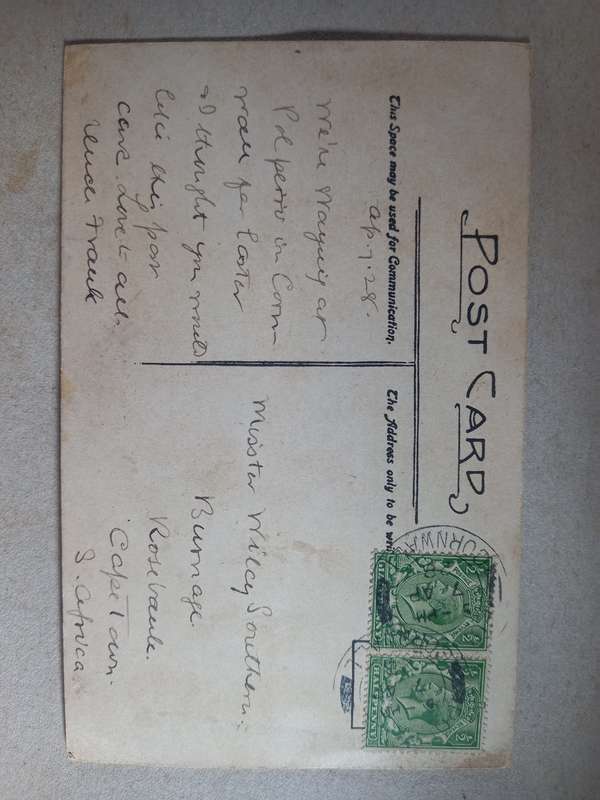 POST CARD
This Space may be used for Communication.
The Address only to be
Ap. 7. 28.
We're staying at
Polperro in Corn
wall for Easter
& I thought you would
like this post
card. Love to all.
Uncle Frank
Master Wiley Southern.
Burnage.
Rosebank.
Cape Town.
S. Africa.
CORNWA
HALFPENNY